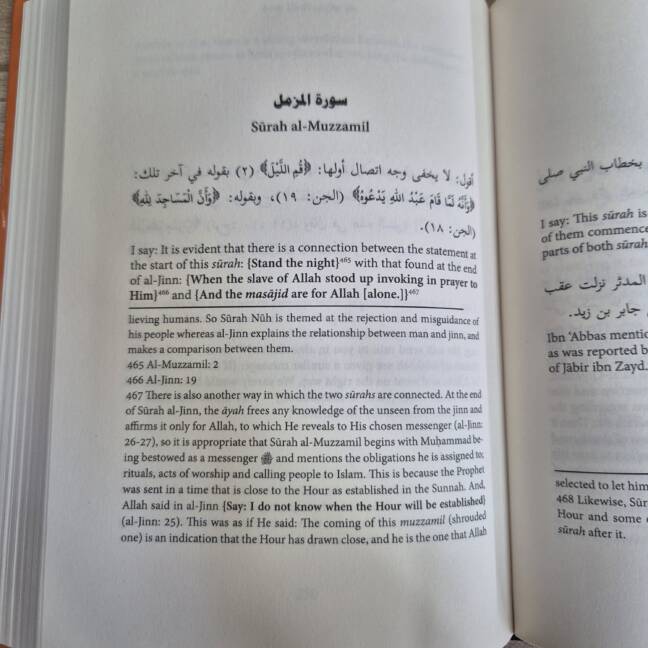 سورة المزمل
Sūrah al-Muzzamil
أقول: لا يخفى وجه اتصال أولها: ﴿قُمِ اللَّيْلَ﴾ (٢) بقوله في آخر تلك:
﴿وَأَنَّهُ لَمَّا قَامَ عَبْدُ اللَّهِ يَدْعُوهُ﴾ (الجن: ١٩)، وبقوله: ﴿وَأَنَّ الْمَسَاجِدَ لِلَّهِ﴾
(الجن: ١٨).
I say: It is evident that there is a connection between the statement at
the start of this sūrah: {Stand the night}465 with that found at the end
of al-Jinn: {When the slave of Allah stood up invoking in prayer to
Him}466 and {And the masājid are for Allah [alone.]}467
lieving humans. So Sūrah Nūh is themed at the rejection and misguidance of
his people whereas al-Jinn explains the relationship between man and jinn, and
makes a comparison between them.
465 Al-Muzzamil: 2
466 Al-Jinn: 19
467 There is also another way in which the two sūrahs are connected. At the end
of Sūrah al-Jinn, the āyah frees any knowledge of the unseen from the jinn and
affirms it only for Allah, to which He reveals to His chosen messenger (al-Jinn:
26-27), so it is appropriate that Sūrah al-Muzzamil begins with Muḥammad be-
ing bestowed as a messenger ﷺ and mentions the obligations he is assigned to;
rituals, acts of worship and calling people to Islam. This is because the Prophet
was sent in a time that is close to the Hour as established in the Sunnah. And,
Allah said in al-Jinn {Say: I do not know when the Hour will be established}
(al-Jinn: 25). This was as if He said: The coming of this muzzamil (shrouded
one) is an indication that the Hour has drawn close, and he is the one that Allah
بخطاب النبي صلى
I say: This sūrah is
of them commence
parts of both sūrah
المدثر نزلت عقب
جابر بن زيد.
Ibn ʿAbbas mentio
as was reported b
of Jābir ibn Zayd.
selected to let him
468 Likewise, Sūr
Hour and some
sūrah after it.